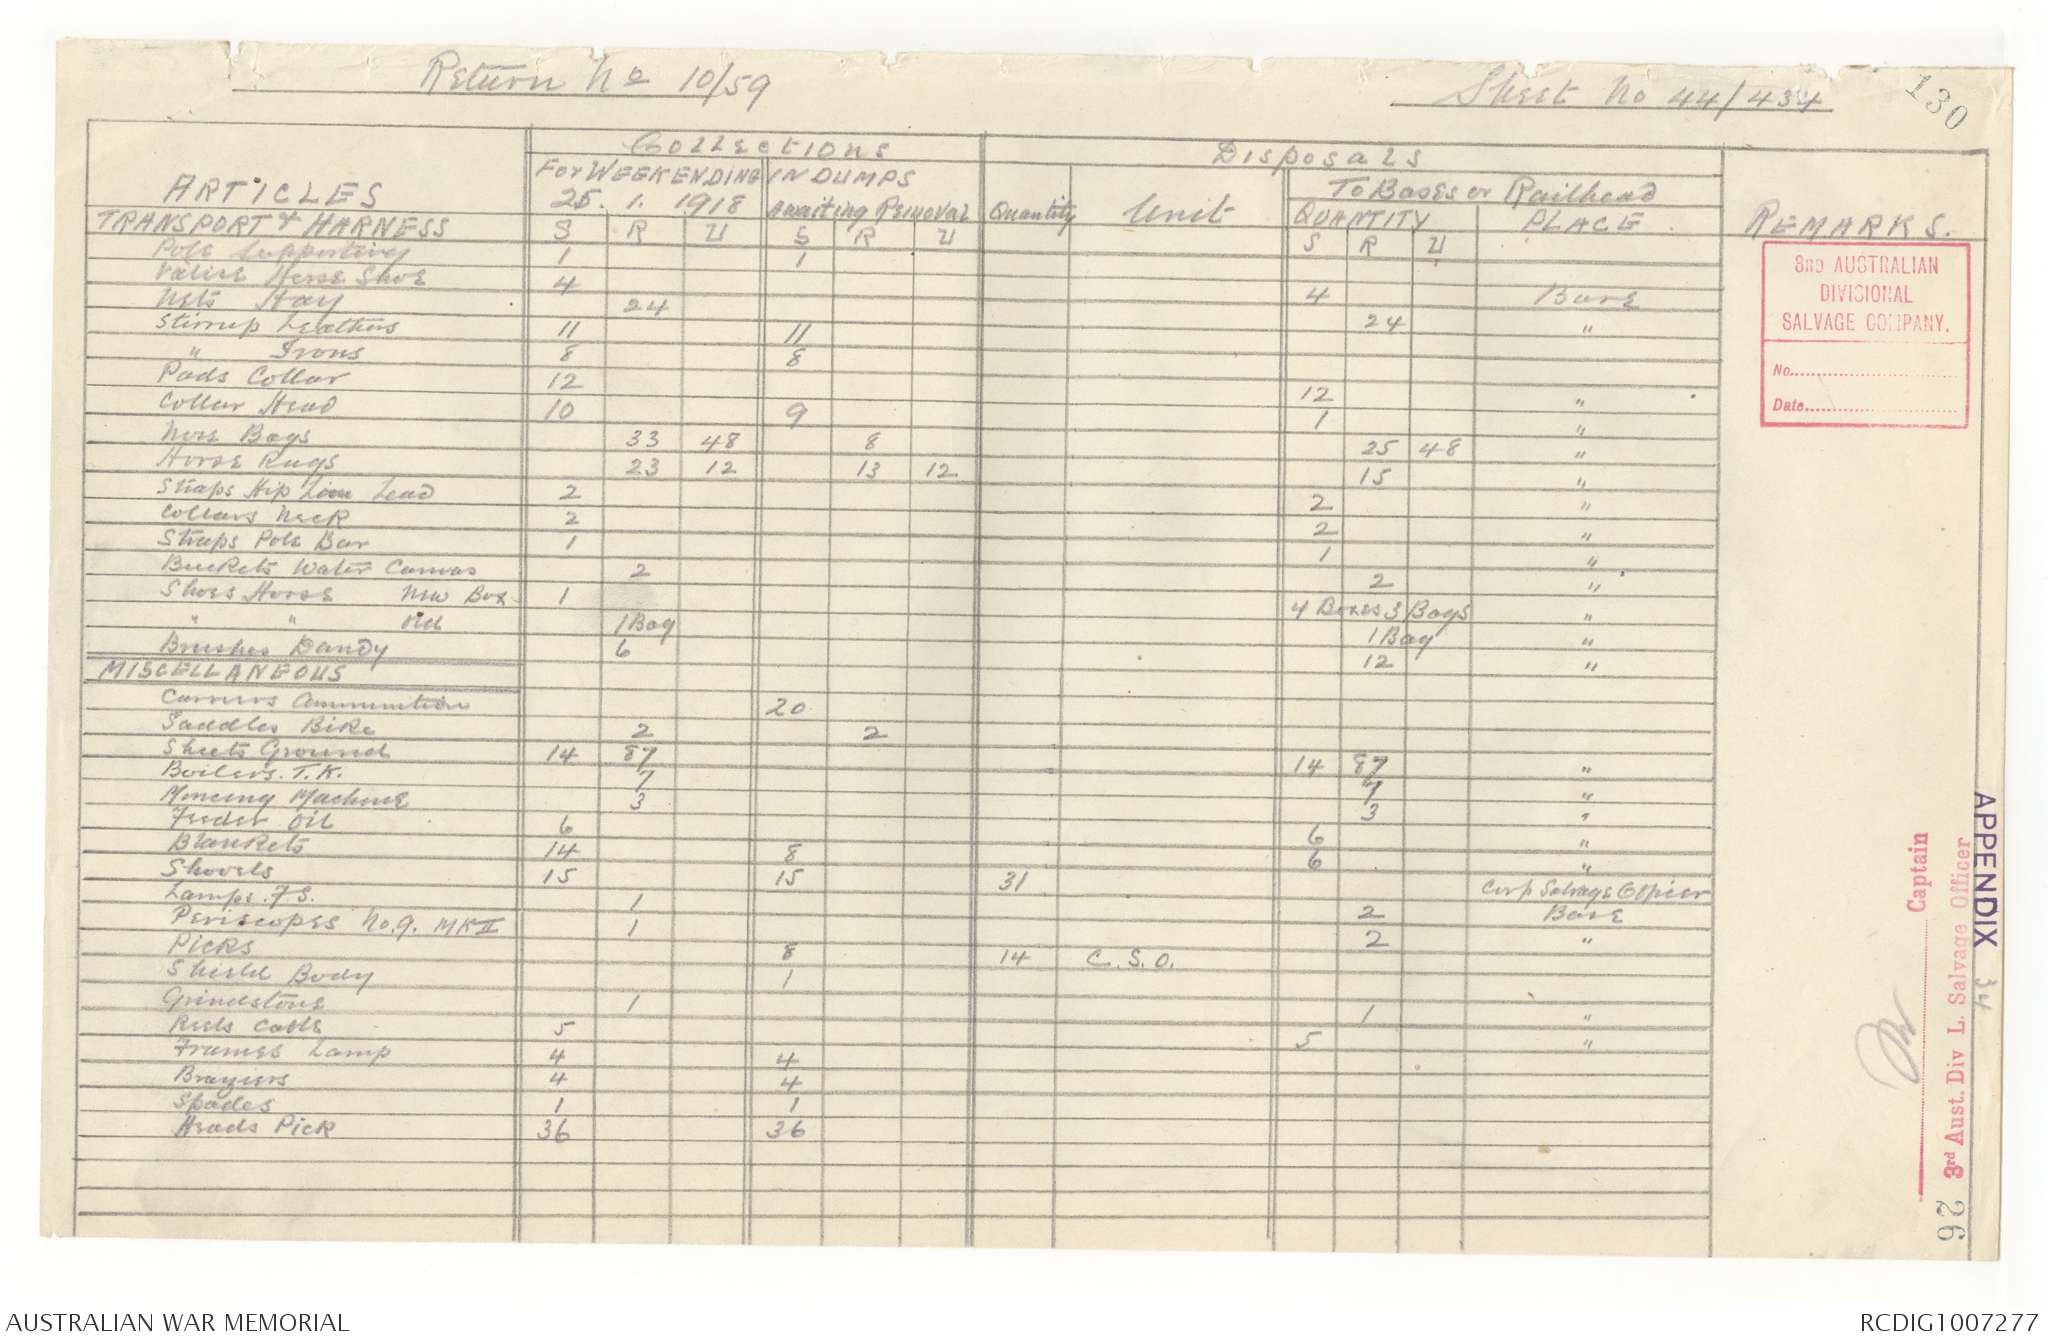 Return No 10/59
Sheet No 44/434
130
COLLECTIONS
Disposals
ARTICLES
For WEEK ENDING
25. 1. 1918
IN DUMPS
Awaiting Removal
Quantity
Unit
To Bases or Railhead
QUANTITY
PLACE
REMARKS.
TRANSPORT & HARNESS S R U S R U S R U
Pole Supporting 1 1
Valise Horse Shoe 4 4 Base
Nets Hay 24 24 "
Stirrup Leathers 11 11
" Irons 8 8
Pads Collar 12 12 "
Collar Head 10 9 1 "
Nose Bags 33 48 8 25 48 "
Horse Rugs 23 12 13 12 15 "
Straps Hip Loin Lead 2 2 "
Collars Neck 2 2 "
Straps Pole Bar 1 1 "
Buckets Water Canvas 2 2 "
Shoes Horse New Box 1 4 Boxes 3 Bags "
" " Old 1 Bag 1 Bag "
Brushes Dandy 6 12 "
MISCELLANEOUS
Carriers Ammunition 20
Saddles Bike 2 2
Sheets Ground 14 87 14 87 "
Boilers. T.K. 7 7 "
Mincing Machine 3 3 "
Feeder Oil 6 6 "
Blankets 14 8 6 "
Shovels 15 15 31 Corp Salvage Officer
Lamps. F.S. 1 2 Base
Periscopes No. 9. MK II 1 2 "
Picks 8 14 C. S. O.
Shield Body 1
Grindstone 1 1 "
Reels Cable 5 5 "
Frames Lamp 4 4
Braziers 4 4
Spades 1 1
Heads Pick 36 36
3RD AUSTRALIAN
DIVISIONAL
SALVAGE COMPANY.
No.
Date
APPENDIX 34
Captain
3rd Aust. Div L. Salvage Officer
26
AUSTRALIAN WAR MEMORIAL
RCDIG1007277